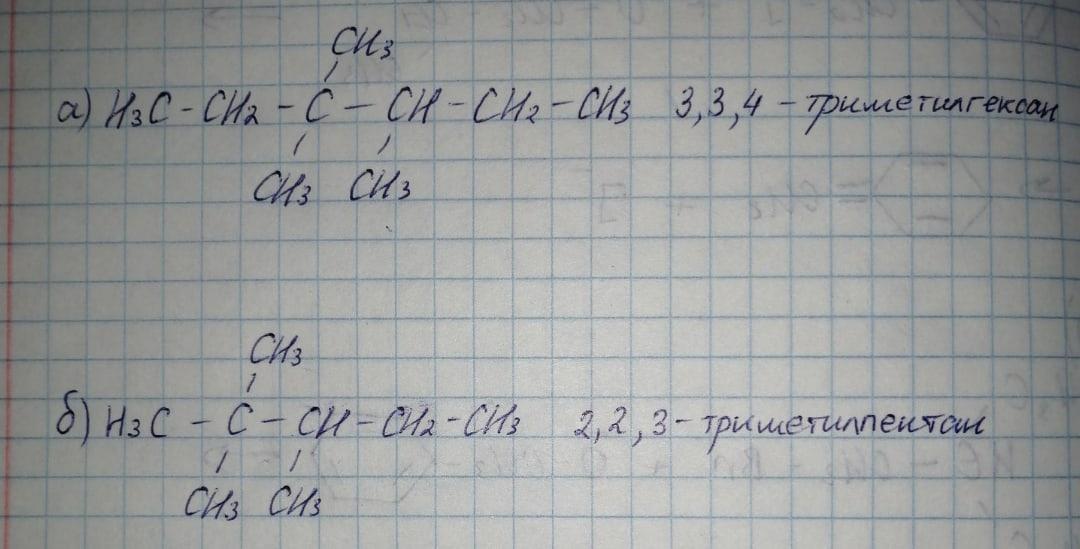 CH3
а) H3C - CH2 - C - CH - CH2 - CH3 3,3,4 - триметилгексан
CH3 CH3
CH3
б) H3C - C - CH - CH2 - CH3 2,2,3 - триметилпентан
CH3 CH3